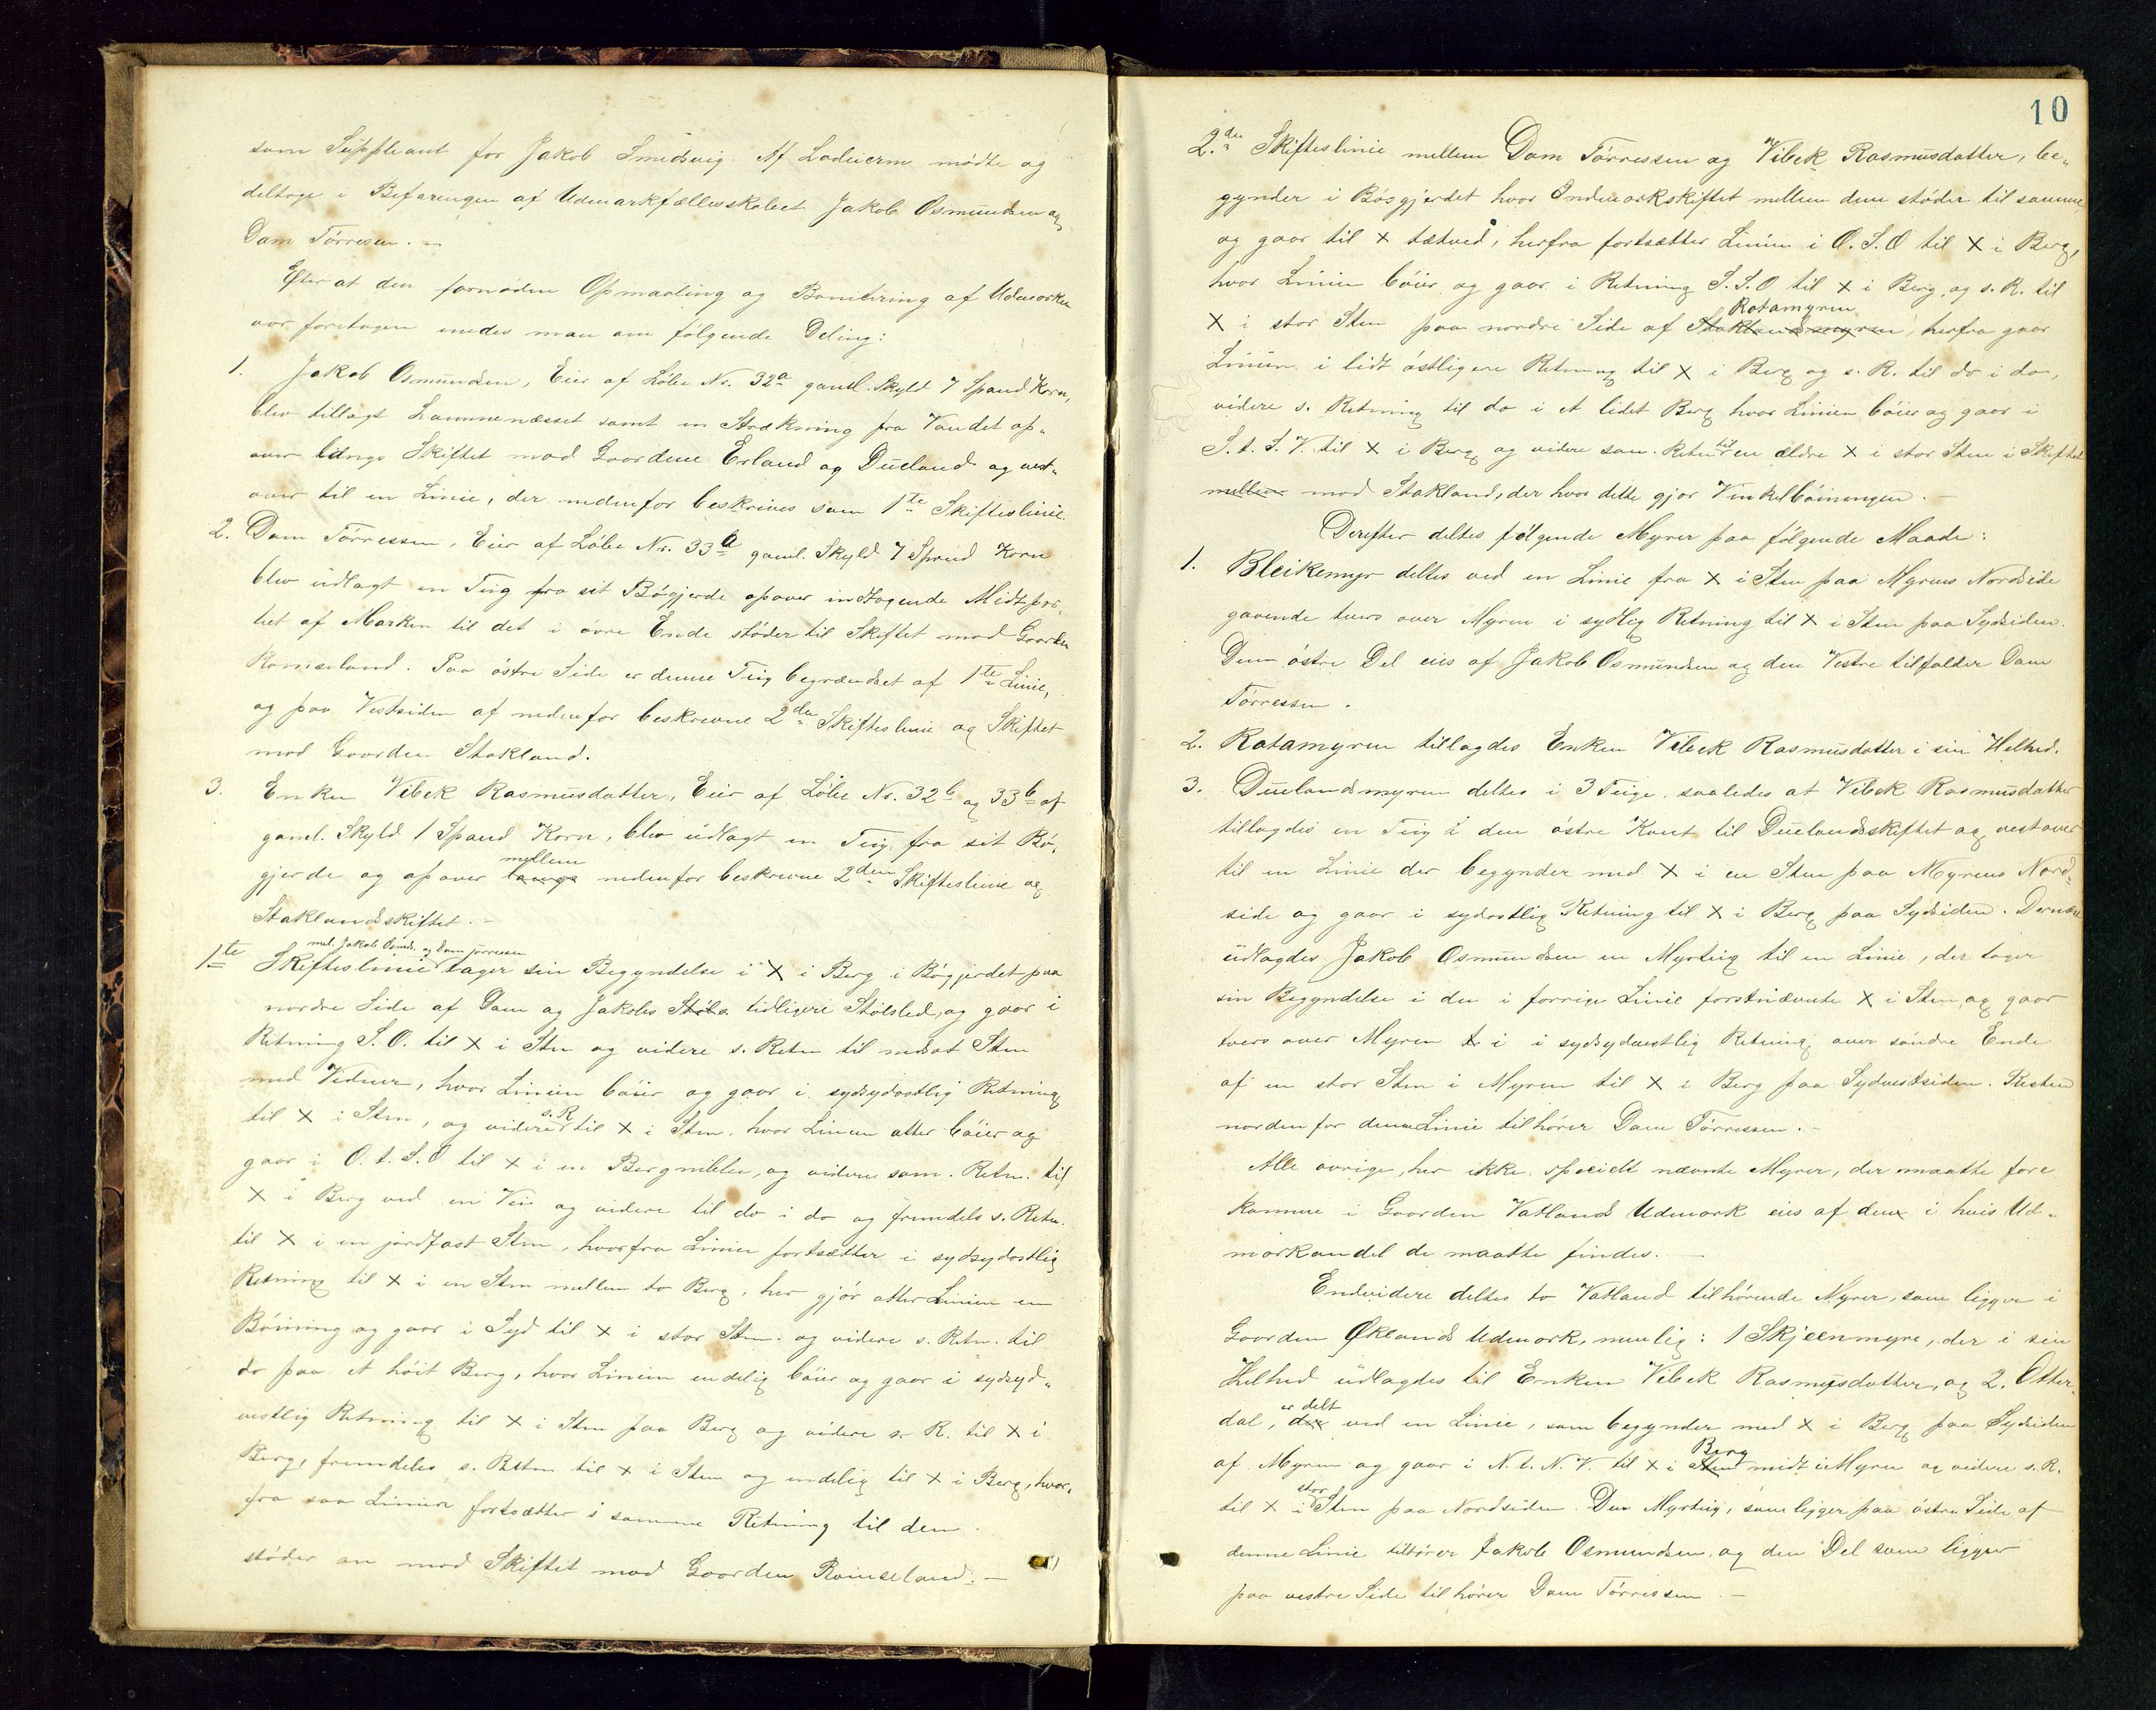 som Suppleant for Jakob Smedsvig. Af Lodeierne mødte og
deltoge i Befaringen af Udmarkfællesskabet Jakob Osmundsen og
Dam Tørresen. —
Efter at den fornødne Opmaaling og Bonitering af Udmarken
var foretagen enedes man om følgende Deling:
1. Jakob Osmundsen, Eier af Løbe Nr. 32a gaml. Skyld 7 Spand Korn,
blev tillagt Lammenæsset samt en Strækning fra Vandet op-
over langs Skiftet mod Gaardene Erland og Dueland og vest-
over til en Linie, der nedenfor beskrives som 1ste Skifteslinie.
2. Dam Tørressen, Eier af Løbe Nr. 33a gaml. Skyld 7 Spand Korn
blev udlagt en Teig fra sit Bøgjerde opover indtagende Midtpar-
tiet af Marken til det i øvre Ende støder til Skiftet mod Gaarden
Ramseland. Paa østre Side er denne Teig begrændset af 1te Linie,
og paa Vestsiden af nedenfor beskrevne 2den Skifteslinie og Skiftet
mod Gaarden Stakland.
3. Enken Vibek Rasmusdatter, Eier af Løbe Nr. 32b og 33b af
gaml. Skyld 1 Spand Korn, blev udlagt en Teig fra sit Bø-
gjerde og opover langs mellem nedenfor beskrevne 2den Skifteslinie og
Staklandsskiftet. —
1te Skifteslinie mel. Jakob Osmds. og Dam Tørressen tager sin Begyndelse i X i Berg i Bøgjerdet paa
nordre Side af Dam og Jakobs Støls tidligere Stølsted, og gaar i
Retning S. O. til X i Sten og videre s. Retn til nedsat Sten
med Vidner, hvor Linien bøier og gaar i sydsydostlig Retning
til X i Sten, og videre s. R til X i Sten, hvor Linien atter bøier og
gaar i O. t. S. O til X i en Bergnibbe, og videre sam. Retn. til
X i Berg ved en Vei og videre til do i do og fremdels s. Retn.
til X i en jordfast Sten, hvorfra Linien fortsætter i sydsydostlig
Retning til X i en Sten mellem to Berg, her gjør atter Linien en
Bøining og gaar i Syd til X i stor Sten. og videre s. Retn. til
do paa et høit Berg, hvor Linien endelig bøier og gaar i sydsyd-
vestlig Retning til X i Sten paa Berg og videre s. R. til X i
Berg, fremdeles s. Retn til X i Sten og endelig til X i Berg, hvor-
fra saa Linien fortsætter i samme Retning til den
støder an mod Skiftet mod Gaarden Ramseland. —
10
2.den Skifteslinie mellem Dam Tørressen og Vibek Rasmusdatter, be-
gynder i Bøsgjerdet hvor Indmarkskiftet mellem dem støder til samme
og gaar til X tætved, herfra fortsætter Linien i O. S. O til X i Berg,
hvor Linien bøier og gaar i Retning S. S. O til X i Berg, og s. R. til
X i stor Sten paa nordre Side af Staklandsmyren Rotamyren, herfra gaar
Linien i lidt østligere Retning til X i Berg og s. R. til do i do,
videre s. Retning til do i et lidet Berg hvor Linien bøier og gaar i
S. t. S. V. til X i Berg, og videre sam. Retn til en ældre X i stor Sten i Skiftet
mellem mod Stakland, der hvor dette gjør Vinkelbøiningen. —
Derefter deltes følgende Myrer paa følgende Maade:
1. Bleikemyr deltes ved en Linie fra X i Sten paa Myrens Nordside
gaaende tvers over Myren i sydlig Retning til X i Sten paa Sydsiden.
Den østre Del eies af Jakob Osmundsen og den Vestre tilfalder Dam
Tørressen.
2. Rotamyren tillagdes Enken Vibek Rasmusdatter i sin Helhed.
3. Duelandsmyren deltes i 3 Teige, saaledes at Vibek Rasmusdatter
tillagdes en Teig i den østre Kant til Duelandsskiftet og vestover
til en Linie der begynder med X i en Sten paa Myrens Nord-
side og gaar i sydostlig Retning til X i Berg paa Sydsiden. Dernæst
udlagdes Jakob Osmundsen en Myrteig til en Linie, der tager
sin Begyndelse i den i forrige Linie førstnævnte X i Sten, og gaar
tvers over Myren t i i sydsydvestlig Retning over søndre Ende
af en stor Sten i Myren til X i Berg paa Sydvestsiden. Resten
nordenfor denne Linie tilhører Dam Tørressen. —
Alle øvrige, her ikke specielt nævnte Myrer, der maatte fore
komme i Gaarden Vatlands Udmark eies af den i hvis Ud-
markandel de maatte findes. —
Endvidere deltes to Vatland tilhørende Myrer, som ligger i
Gaarden Øklands Udmark, nemlig: 1 Skjeenmyre, der i sin
Helhed udlagdes til Enken Vibek Rasmusdatter, og 2. Otter-
dal, der er delt ved en Linie, som begynder med X i Berg paa Sydsiden
af Myren og gaar i N. t. N. V. til X i Sten Berg midt i Myren og videre s. R.
til X i stor Sten paa Nordsiden. Den Myrteig, som ligger paa østre Side af
denne Linie tilhører Jakob Osmundsen, og den Del som ligger
paa vestre Side tilhører Dam Tørressen. —